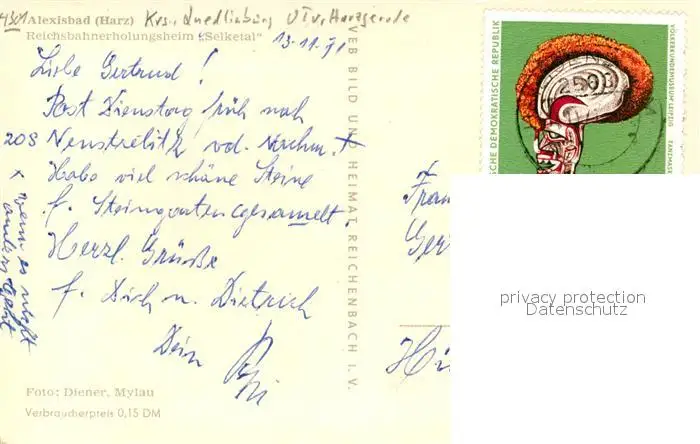 4301 Alexisbad (Harz) Krs. Quedlinburg OT v. Harzgerode
Reichsbahnerholungsheim "Selketal"
13.11.71
Liebe Gertrud!
Post Dienstag früh nach
Neustrelitz od. Nachm. x
Habe viel schöne Steine
f. Steingarten gesammelt.
Herzl. Grüße
f. Dich u. Dietrich
Dein
x wenn es nicht
Foto: Diener, Mylau
Verbraucherpreis 0,15 DM
VEB BILD UND HEIMAT REICHENBACH I. V.
SCHE DEMOKRATISCHE REPUBLIK
VÖLKERKUNDEMUSEUM LEIPZIG
TANZMASK
Frau
Ger
privacy protection
Datenschutz